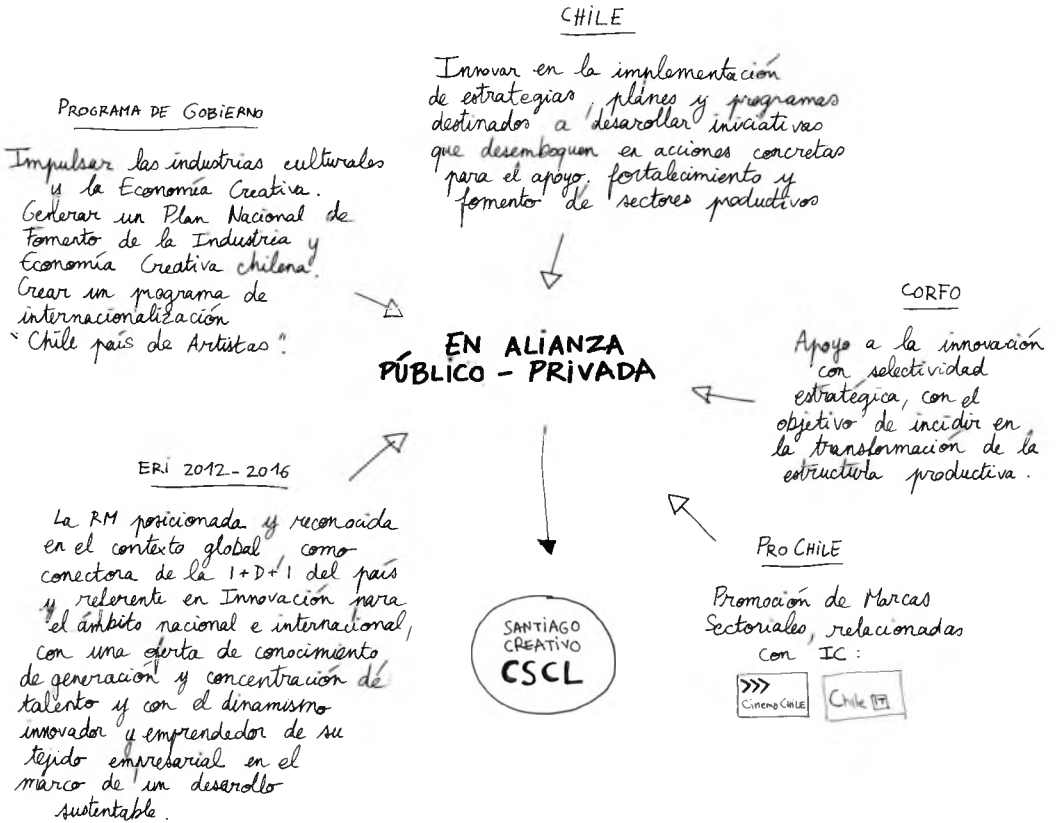 CHILE
Innovar en la implementación
de estrategias, planes y programas
destinados a desarollar iniciativas
que desemboquen en acciones concretas
para el apoyo, fortalecimiento y
fomento de sectores productivos
PROGRAMA DE GOBIERNO
Impulsar las industrias culturales
y la Economía Creativa.
Generar un Plan Nacional de
Fomento de la Industria y
Economía Creativa chilena.
Crear un programa de
internacionalización
"Chile país de Artistas".
EN ALIANZA
PÚBLICO - PRIVADA
CORFO
Apoyo a la innovación
con selectividad
estratégica, con el
objetivo de incidir en
la transformación de la
estructura productiva.
ERI 2012-2016
La RM posicionada y reconocida
en el contexto global, como
conectora de la I+D+I del país
y referente en Innovación para
el ámbito nacional e internacional,
con una oferta de conocimiento
de generación y concentración de
talento y con el dinamismo
innovador y emprendedor de su
tejido empresarial en el
marco de un desarollo
sustentable.
PRO CHILE
Promoción de Marcas
Sectoriales, relacionadas
con IC:
>>>
Cinema CHILE
Chile IT
SANTIAGO
CREATIVO
CSCL